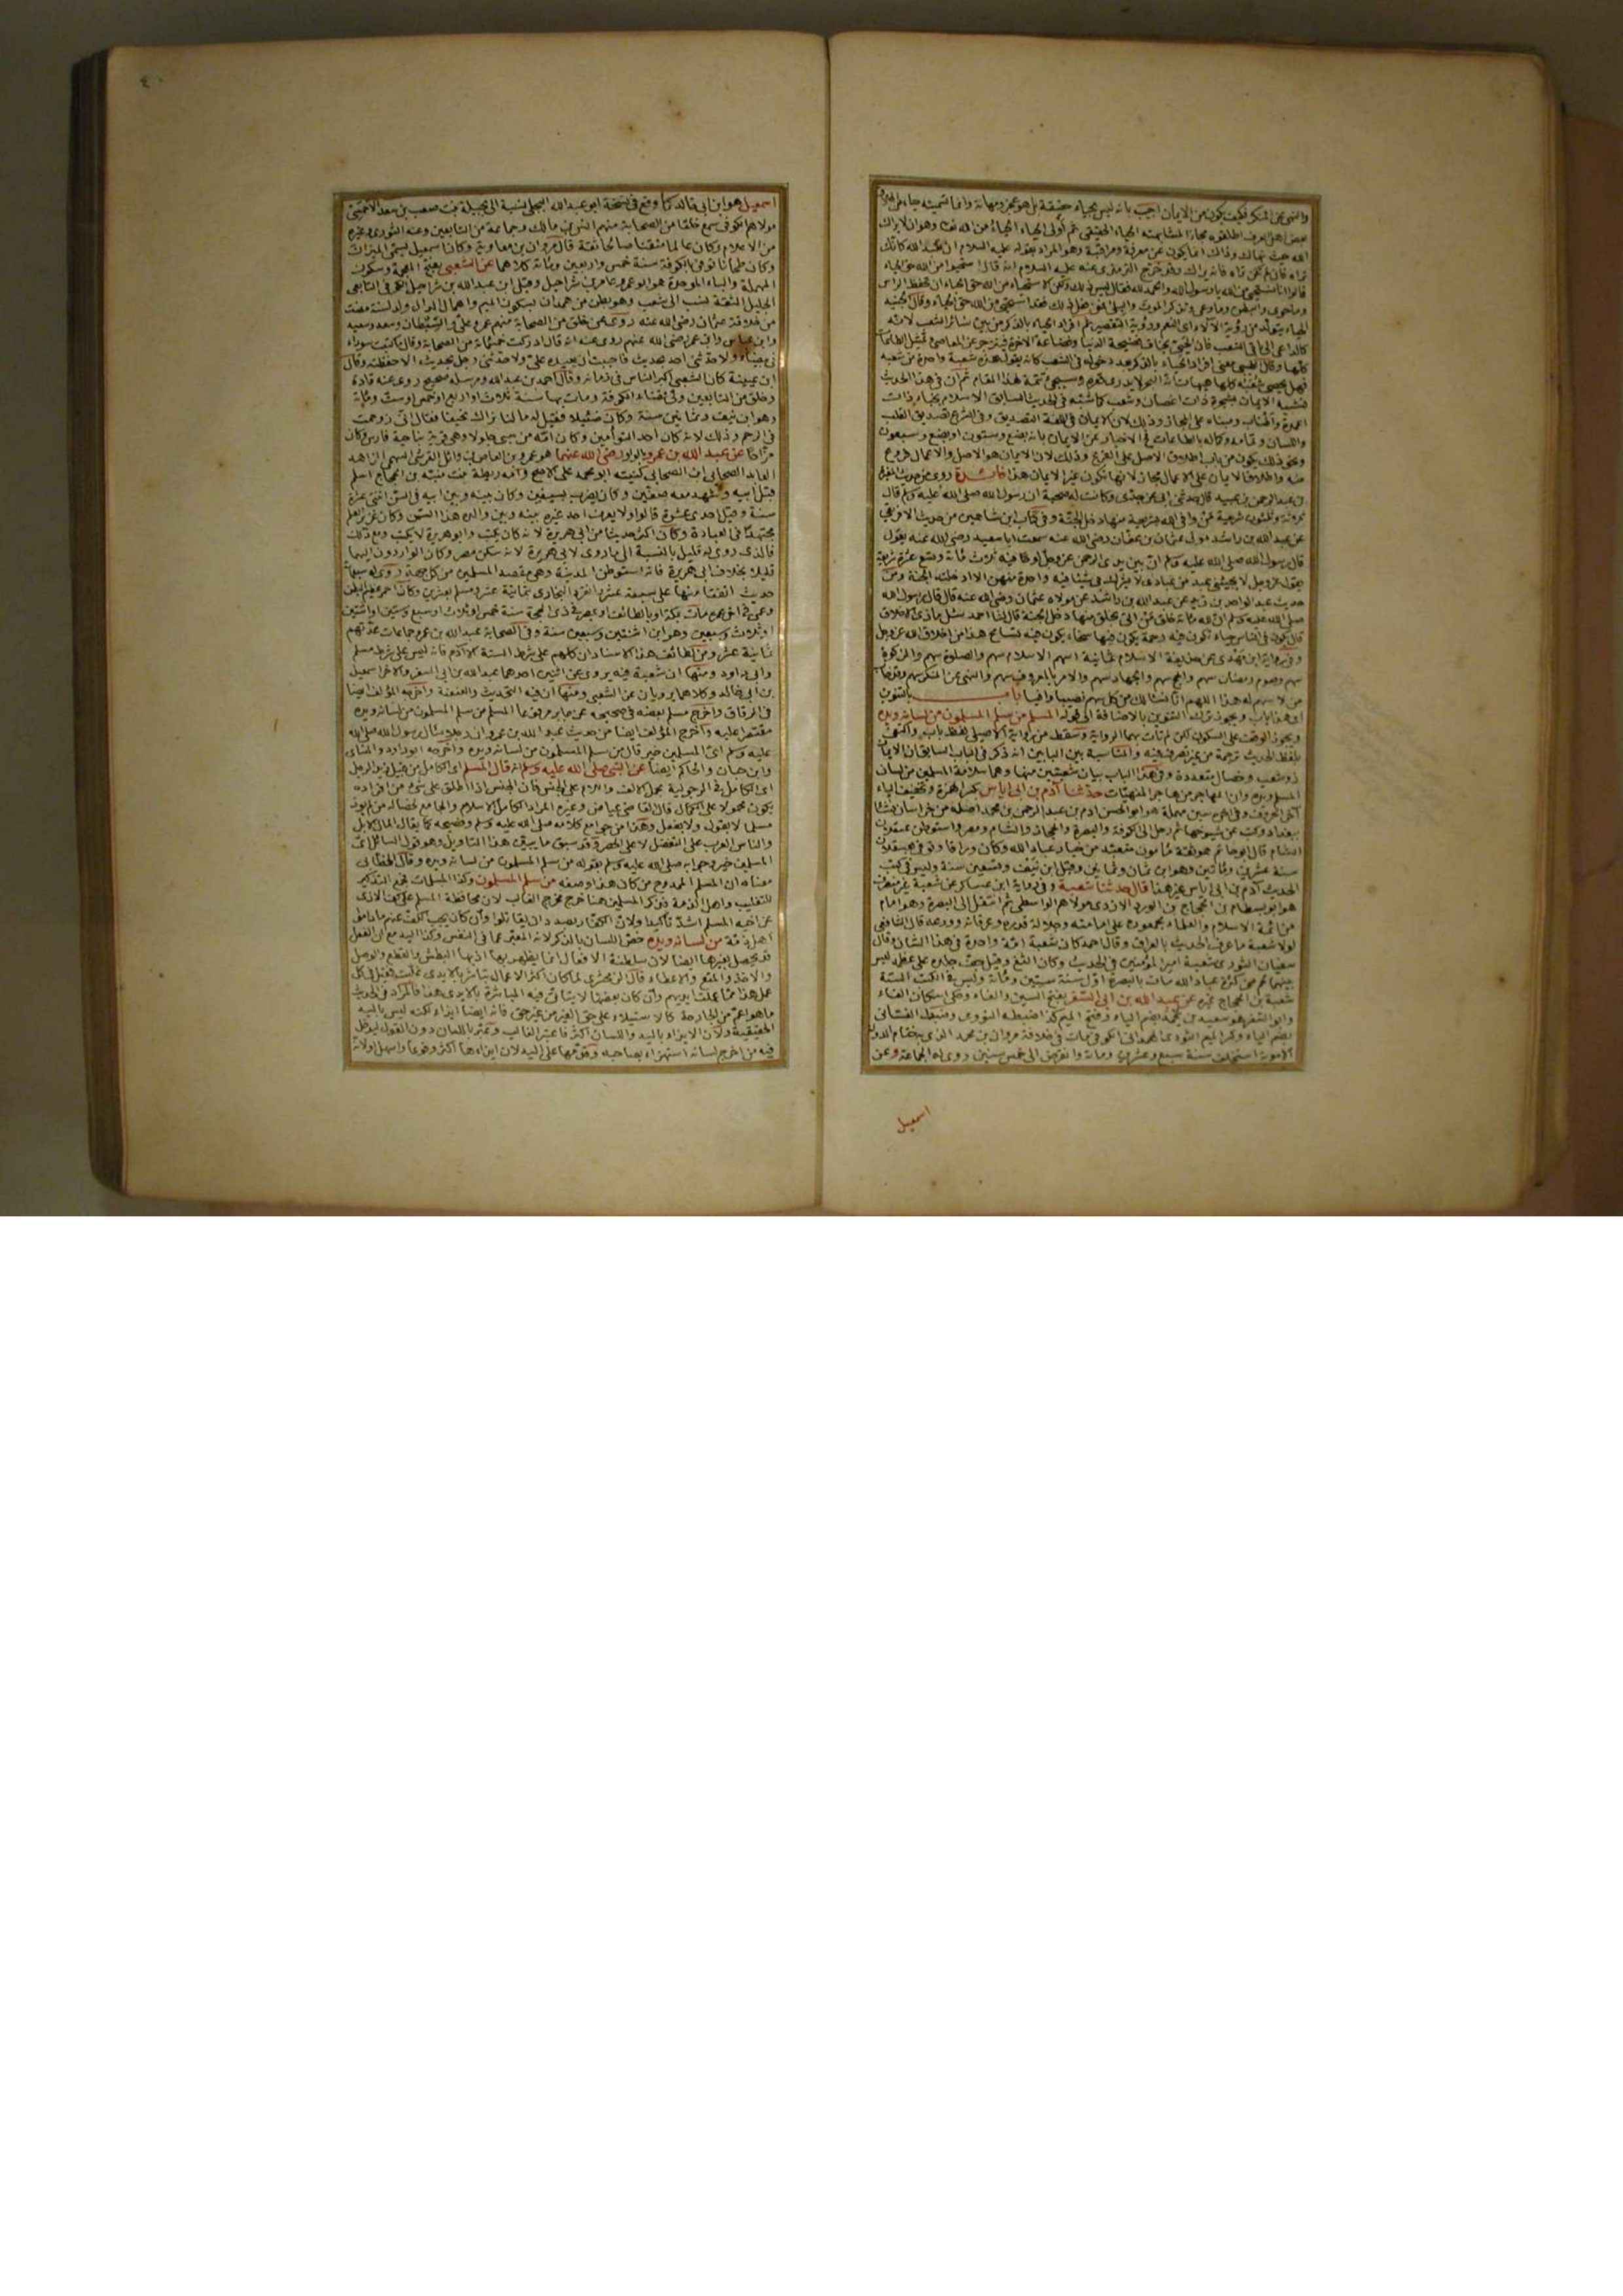 والنهي عن المنكر فكيف يكون من الايمان اجيب بانه ليس بحياء حقيقة بل هو عجز ومهانة وانما تسميته حياء
بعض اهل العرف اطلقوه مجازا لمشابهته الحياء الحقيقي ثم اولى الحياء الحياء من الله تعالى وهو ان لا يراك
الله حيث نهاك وذاك انما يكون عن معرفة ومراقبة وهو المراد بقوله عليه السلام ان تعبد الله كانك
تراه فان لم تكن تراه فانه يراك وقد خرج الترمذي عنه عليه السلام انه قال استحيوا من الله حق الحياء
قالوا انا نستحيي من الله يا رسول الله والحمد لله فقال ليس ذلك ولكن الاستحياء من الله حق الحياء ان تحفظ الراس
وما حوى والبطن وما وعى وتذكر الموت والبلى فمن فعل ذلك فقد استحيى من الله حق الحياء وقال الجنيد
الحياء يتولد من رؤية الآلاء اى النعم ورؤية التقصير ثم افراد الحياء بالذكر من بين سائر الشعب لانه
كالداعي الى باقي الشعب فان الحيي يخاف فضيحة الدنيا وفضاعة الاخرة فينزجر عن المعاصي ويمتثل الطاعات
كلها وقال الطيبي معنى افراد الحياء بالذكر بعد دخوله في الشعب كانه يقول هذه شعبة واحدة من شعبه
فهل يحصى شعبه كلها هيهات ان البحر لا يغرف وسيجئ تتمة لهذا المقام ثم ان في هذا الحديث
تشبيه الايمان بشجرة ذات اغصان وشعب كما شبه في الحديث السابق الاسلام بخباء ذات
اعمدة واطناب ومبناه على المجاز وذلك لان الايمان في اللغة التصديق وفي الشرع تصديق القلب
واللسان وتمامه وكماله بالطاعات فح الاخبار عن الايمان بانه بضع وستون او بضع وسبعون
ونحو ذلك يكون من باب اطلاق الاصل على الفرع وذلك لان الايمان هو الاصل والاعمال فروع
منه واطلاق الايمان على الاعمال مجاز لانها تكون عن الايمان هذا فائدة روى من حديث المغيرة
بن عبد الرحمن بن عبيد قال حدثني ابي عن جدي وكانت له صحبة ان رسول الله صلى الله عليه وسلم قال
ثلاثة وثلثون شريعة من وافى الله بشريعة منها دخل الجنة وفي كتاب ابن شاهين من حديث الافريقي
عن عبد الله بن راشد مولى عثمان بن عفان رضي الله عنه سمعت ابا سعيد رضي الله عنه يقول
قال رسول الله صلى الله عليه وسلم ان بين يدى الرحمن عز وجل لوحا فيه ثلاث مائة وتسع عشرة شريعة
يقول عز وجل لا يجيئني عبد من عبادي لا يشرك بي شيئا فيه واحدة منهن الا ادخلته الجنة ومن
حديث عبد الواحد بن زيد عن عبد الله بن راشد عن مولاه عثمان رضي الله عنه قال قال رسول الله
صلى الله عليه وسلم ان لله مائة خلق من اتى بخلق منها دخل الجنة قال لنا احمد سئل ما الاخلاق
قال يكون في الناس حياء تكون فيه رحمة يكون فيها سخاء يكون فيه تسامح هذا من اخلاق الله عز وجل
وفي عن حذيفة الاسلام ثمانية اسهم الاسلام سهم والصلوة سهم والزكوة
سهم وصوم رمضان سهم والحج سهم والجهاد سهم والامر بالمعروف سهم والنهي عن المنكر سهم وقد خاب
من لا سهم له هذا اللهم انا نسئالك من كل سهم نصيبا وافيا باب بالتنوين
اى هذا باب ويجوز ترك التنوين بالاضافة الى قوله المسلم من سلم المسلمون من لسانه ويده
ويجوز الوقف على السكون لكن لم تات بهما الرواية وسقط من رواية الاصيلي لفظ باب واكتفى
بلفظ الحديث ترجمة من غير تصرف فيه والمناسبة بين البابين انه ذكر في الباب السابق ان الايمان
ذو شعب وخصال متعددة وفي هذا الباب بيان شعبتين منها وهما سلامة المسلمين من لسان
المسلم ويده وان المهاجر من هاجر المنهيات حدثنا آدم بن ابي اياس بكسر الهمزة وتخفيف الياء
آخر الحروف وفي اخره سين مهملة هو ابو الحسن ادم بن عبد الرحمن بن محمد اصله من خراسان نشأ
ببغداد وكتب عن شيوخها ثم رحل الى الكوفة والبصرة والحجاز والشام ومصر واستوطن عسقلان
الشام قال ابو حاتم هو ثقة مأمون متعبد من خيار عباد الله وكان وراقا توفي بعسقلان
سنة عشرين ومأتين وهو ابن ثمان وثمانين وقيل ابن نيف وتسعين سنة وليس في كتب
الحديث آدم بن ابي اياس غير هذا قال حدثنا شعبة وفي رواية ابن عساكر عن شعبة غير منصرف
هو ابو بسطام بن الحجاج بن الورد الازدي مولاهم الواسطي ثم انتقل الى البصرة وهو امام
من ائمة الاسلام والعلماء مجمعون على امامته وجلالة قدره وعرفانه وورعه قال الشافعي
لولا شعبة ما عرف الحديث بالعراق وقال احمد كان شعبة امة واحدة في هذا الشان وقال
سفيان الثوري شعبة امير المؤمنين في الحديث وكان الثغ وقيل جف جلده على عظمه ليس
بينهما لحم من كثرة عبادة الله مات بالبصرة اول سنة ستين ومائة وليس في الكتب الستة
شعبة بن الحجاج غيره عن عبد الله بن ابي السفر بفتح السين والفاء وحكى اسكان الفاء
وابو السفر هو سعيد بن يحمد بضم الياء وفتح الميم كذا ضبطه النووي وضبطه الغساني
بضم الياء وكسر الميم الثوري الهمداني الكوفي مات في خلافة مروان بن محمد الذي به ختام الدولة
الاموية استخلف سنة سبع وعشرين ومائة وانقرض الى خمس سنين روى له الجماعة وعن
اسمعيل
٤٠
اسمعيل هو ابن ابي خالد كما وقع في نسخة ابو عبد الله البجلي نسبة الى بجيلة بنت صعب بن سعد الاحمسي
مولاهم الكوفي سمع خلقا من الصحابة منهم انس بن مالك وجماعة من التابعين وعنه الثوري وغيره
من الاعلام وكان عالما متقنا صالحا ثقة قال مروان بن معاوية وكان اسمعيل يسمى الميزان
وكان طحانا توفي بالكوفة سنة خمس واربعين ومائة كلاهما عن الشعبي بفتح المعجمة وسكون
المهملة والباء الموحدة هو ابو عمرو عامر بن شراحيل وقيل ابن عبد الله بن شراحيل الكوفي التابعي
الجليل الثقة نسب الى شعب وهو بطن من همدان بسكون الميم واهمال الدال ولد لستة مضت
من خلافة عثمان رضي الله عنه روى عن خلق من الصحابة منهم عمر وعلي والسبطان وسعد وسعيد
وابن عباس وابن عمر رضي الله عنهم روى عنه انه قال ادركت خمسمائة من الصحابة وقال ما كتبت سوداء
في بيضاء ولا حدثني احد بحديث فاحببت ان يعيده علي ولا حدثني رجل بحديث الا حفظته وقال
ابن عيينة كان الشعبي اكبر الناس في زمانه وقال احمد بن عبد الله ومرسله صحيح روى عنه قتادة
وخلق من التابعين ولي قضاء الكوفة ومات بها سنة ثلاث او اربع او خمس او ست ومائة
وهو ابن نيف وثمانين سنة وكان ضئيلا فقيل له ما لنا نراك نحيفا فقال انى زوحمت
في الرحم وذلك لانه كان احد التوأمين وكان امه من سبي جلولا وهي قرية بناحية فارس وكان
مزاحا عن عبد الله بن عمرو بالواو رضي الله عنهما هو عمرو بن العاص بن وائل القرشي السهمي الزاهد
العابد الصحابي ابن الصحابي كنيته ابو محمد على الاصح وامه ريطة بنت منبه بن الحجاج اسلم
قبل ابيه وشهد معه صفين وكان يضرب بسيفين وكان بينه وبين ابيه في السن اثنتى عشرة
سنة وقيل احدى عشرة قالوا ولا يعرف احد غيره بينه وبين والده هذا السن وكان غزير العلم
مجتهدا في العبادة وكان اكثر حديثا من ابي هريرة لانه كان يكتب وابو هريرة لا يكتب ومع ذلك
فالذى روى له قليل بالنسبة الى ما روى لابي هريرة لانه سكن مصر وكان الواردون اليها
قليلا بخلاف ابي هريرة فانه استوطن المدينة وهي مقصد المسلمين من كل جهة روى له سبعمائة
حديث اتفقا منها على سبعة عشر وانفرد البخاري بثمانية عشر ومسلم بعشرين وكان احمر عظيم البطن
وعمي في اخر عمره مات بمكة او بالطائف او بمصر في ذى الحجة سنة خمس او ثلاث او سبع وستين او اثنتين
او ثلاث وسبعين وهو ابن اثنتين وسبعين سنة وفي الصحابة عبد الله بن عمرو جماعات عدتهم
ثمانية عشر ومن لطائف هذا الاسناد ان كلهم على شرط الستة الا آدم فانه ليس على شرط مسلم
وابي داود ومنها ان شعبة فيه يروى عن اثنين احدهما عبد الله بن ابي السفر والاخر اسمعيل
بن ابي خالد وكلاهما يرويان عن الشعبي ومنها ان فيه التحديث والعنعنة واخرجه المؤلف ايضا
في الرقاق واخرج مسلم بعضه في صحيحه عن جابر مرفوعا المسلم من سلم المسلمون من لسانه ويده
مقتصرا عليه واخرج المؤلف ايضا من حديث عبد الله بن عمرو ان رجلا سأل رسول الله صلى الله
عليه وسلم اى المسلمين خير قال من سلم المسلمون من لسانه ويده واخرجه ابو داود والنسائي
وابن حبان والحاكم ايضا عن النبي صلى الله عليه وسلم انه قال المسلم اى الكامل من قبيل زيد الرجل
اى الكامل في الرجولية بجعل الالف واللام على الجنس فان الجنس اذا اطلق على شئ من افراده
يكون محمولا على الكمال قال القاضي عياض وغيره المراد الكامل الاسلام والجامع لخصاله من لم يوذ
مسلما لا بقول ولا بفعل وهذا من جوامع كلامه صلى الله عليه وسلم وفصيحه كما يقال المال الابل
والناس العرب على التفضيل لا على الحصر وقد سبق ما يبين هذا التاويل وهو قول السائل اى
المسلمين خير وجوابه صلى الله عليه وسلم بقوله من سلم المسلمون من لسانه ويده وقال الخطابي
معناه ان المسلم الممدوح من كان هذا وصفه من سلم المسلمون وكذا المسلمات فجمع التذكير
للتغليب واهل الذمة فذكر المسلمين هنا خرج مخرج الغالب لان محافظة المسلم على كف الاذى
عن اخيه المسلم اشد تأكيدا ولان الكفار بصدد ان يقاتلوا وان كان يجب الكف عنهم ما داموا
اهل ذمة من لسانه ويده خص اللسان بالذكر لانه المعبر عما في النفس وكذا اليد مع ان الفعل
قد يحصل بغيرها ايضا لان سلطنة الافعال انما يظهر بها اذ بها البطش والقطع والوصل
والاخذ والمنع والاعطاء قال الزمخشري لما كان اكثر الاعمال تباشر بالايدى غلبت فقيل في كل
عمل هذا مما عملت ايديهم وان كان بعضها لا يتأتى فيه المباشرة بالايدى هذا فالمراد في الحديث
ما هو اعم من الجارحة كالاستيلاء على حق الغير من غير حق فانه ايضا ايذاء لكنه ليس باليد
الحقيقية ولان الايذاء باليد واللسان اكثر فاعتبر الغالب وعبر باللسان دون القول ليدخل
فيه من اخرج لسانه استهزاء بصاحبه وقدمها على اليد لان ايذاءها اكثر وقوعا واسهل ولانه